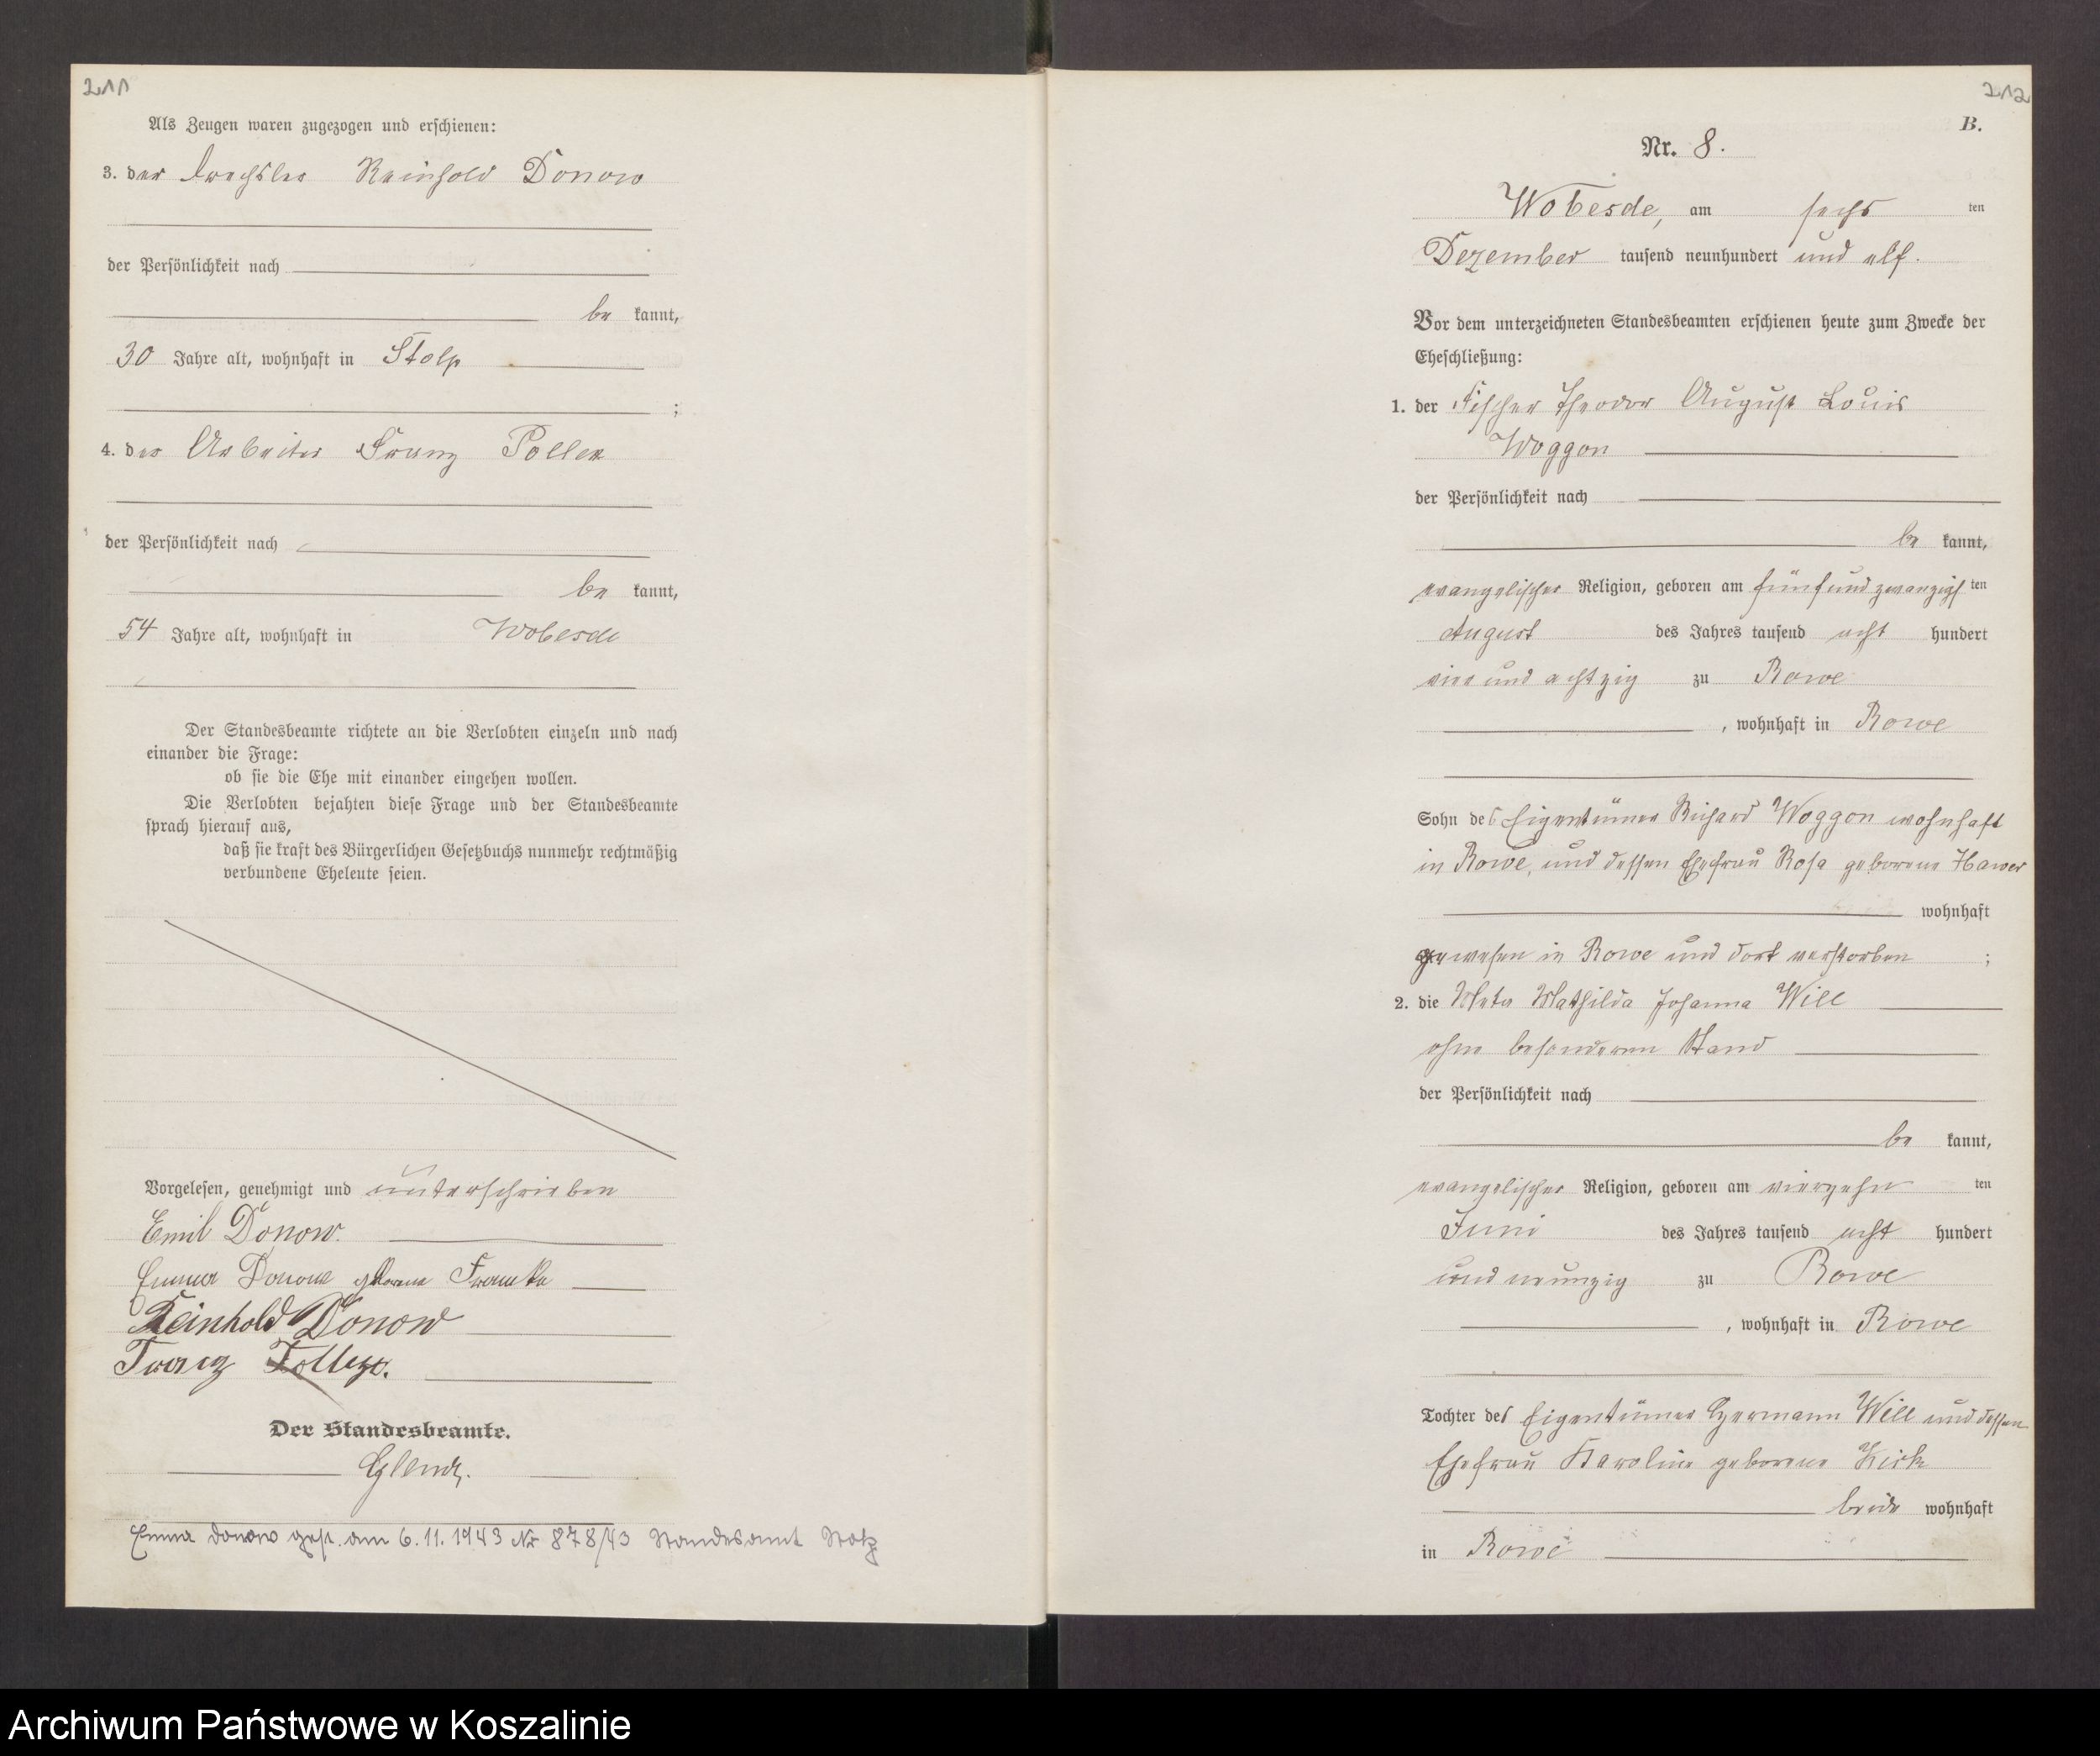 211
Als Zeugen waren zugezogen und erschienen:
3. der Drechsler Reinhold Donow
der Persönlichkeit nach
be kannt,
30 Jahre alt, wohnhaft in Stolp
;
4. der Arbeiter Franz Pollex
der Persönlichkeit nach
be kannt,
54 Jahre alt, wohnhaft in Wobesde
Der Standesbeamte richtete an die Verlobten einzeln und nach
einander die Frage:
ob sie die Ehe mit einander eingehen wollen.
Die Verlobten bejahten diese Frage und der Standesbeamte
sprach hierauf aus,
daß sie kraft des Bürgerlichen Gesetzbuchs nunmehr rechtmäßig
verbundene Eheleute seien.
Vorgelesen, genehmigt und unterschrieben
Emil Donow.
Emma Donow geborene Framke
Reinhold Donow
Franz Pollex.
Der Standesbeamte.
Emma Donow gest. am 6.11.1943 Nr 878/43 Standesamt Stolp
212
B.
Nr. 8.
Wobesde, am sechs ten
Dezember tausend neunhundert und elf.
Vor dem unterzeichneten Standesbeamten erschienen heute zum Zwecke der
Eheschließung:
1. der Fischer Theodor August Louis
Woggon
der Persönlichkeit nach
be kannt,
evangelischer Religion, geboren am fünfundzwanzigs ten
August des Jahres tausend acht hundert
vier und achtzig zu Rowe
, wohnhaft in Rowe
Sohn des Eigentümer Richard Woggon wohnhaft
in Rowe, und dessen Ehefrau Rosa geborene Hawer
wohnhaft
gewesen in Rowe und dort verstorben ;
2. die Meta Mathilda Johanna Will
ohne besonderen Stand
der Persönlichkeit nach
be kannt,
evangelischer Religion, geboren am vierzehn ten
Juni des Jahres tausend acht hundert
und neunzig zu Rowe
, wohnhaft in Rowe
Tochter des Eigentümer Hermann Will und dessen
Ehefrau Karoline geborene Kirk
beide wohnhaft
in Rowe
Archiwum Państwowe w Koszalinie